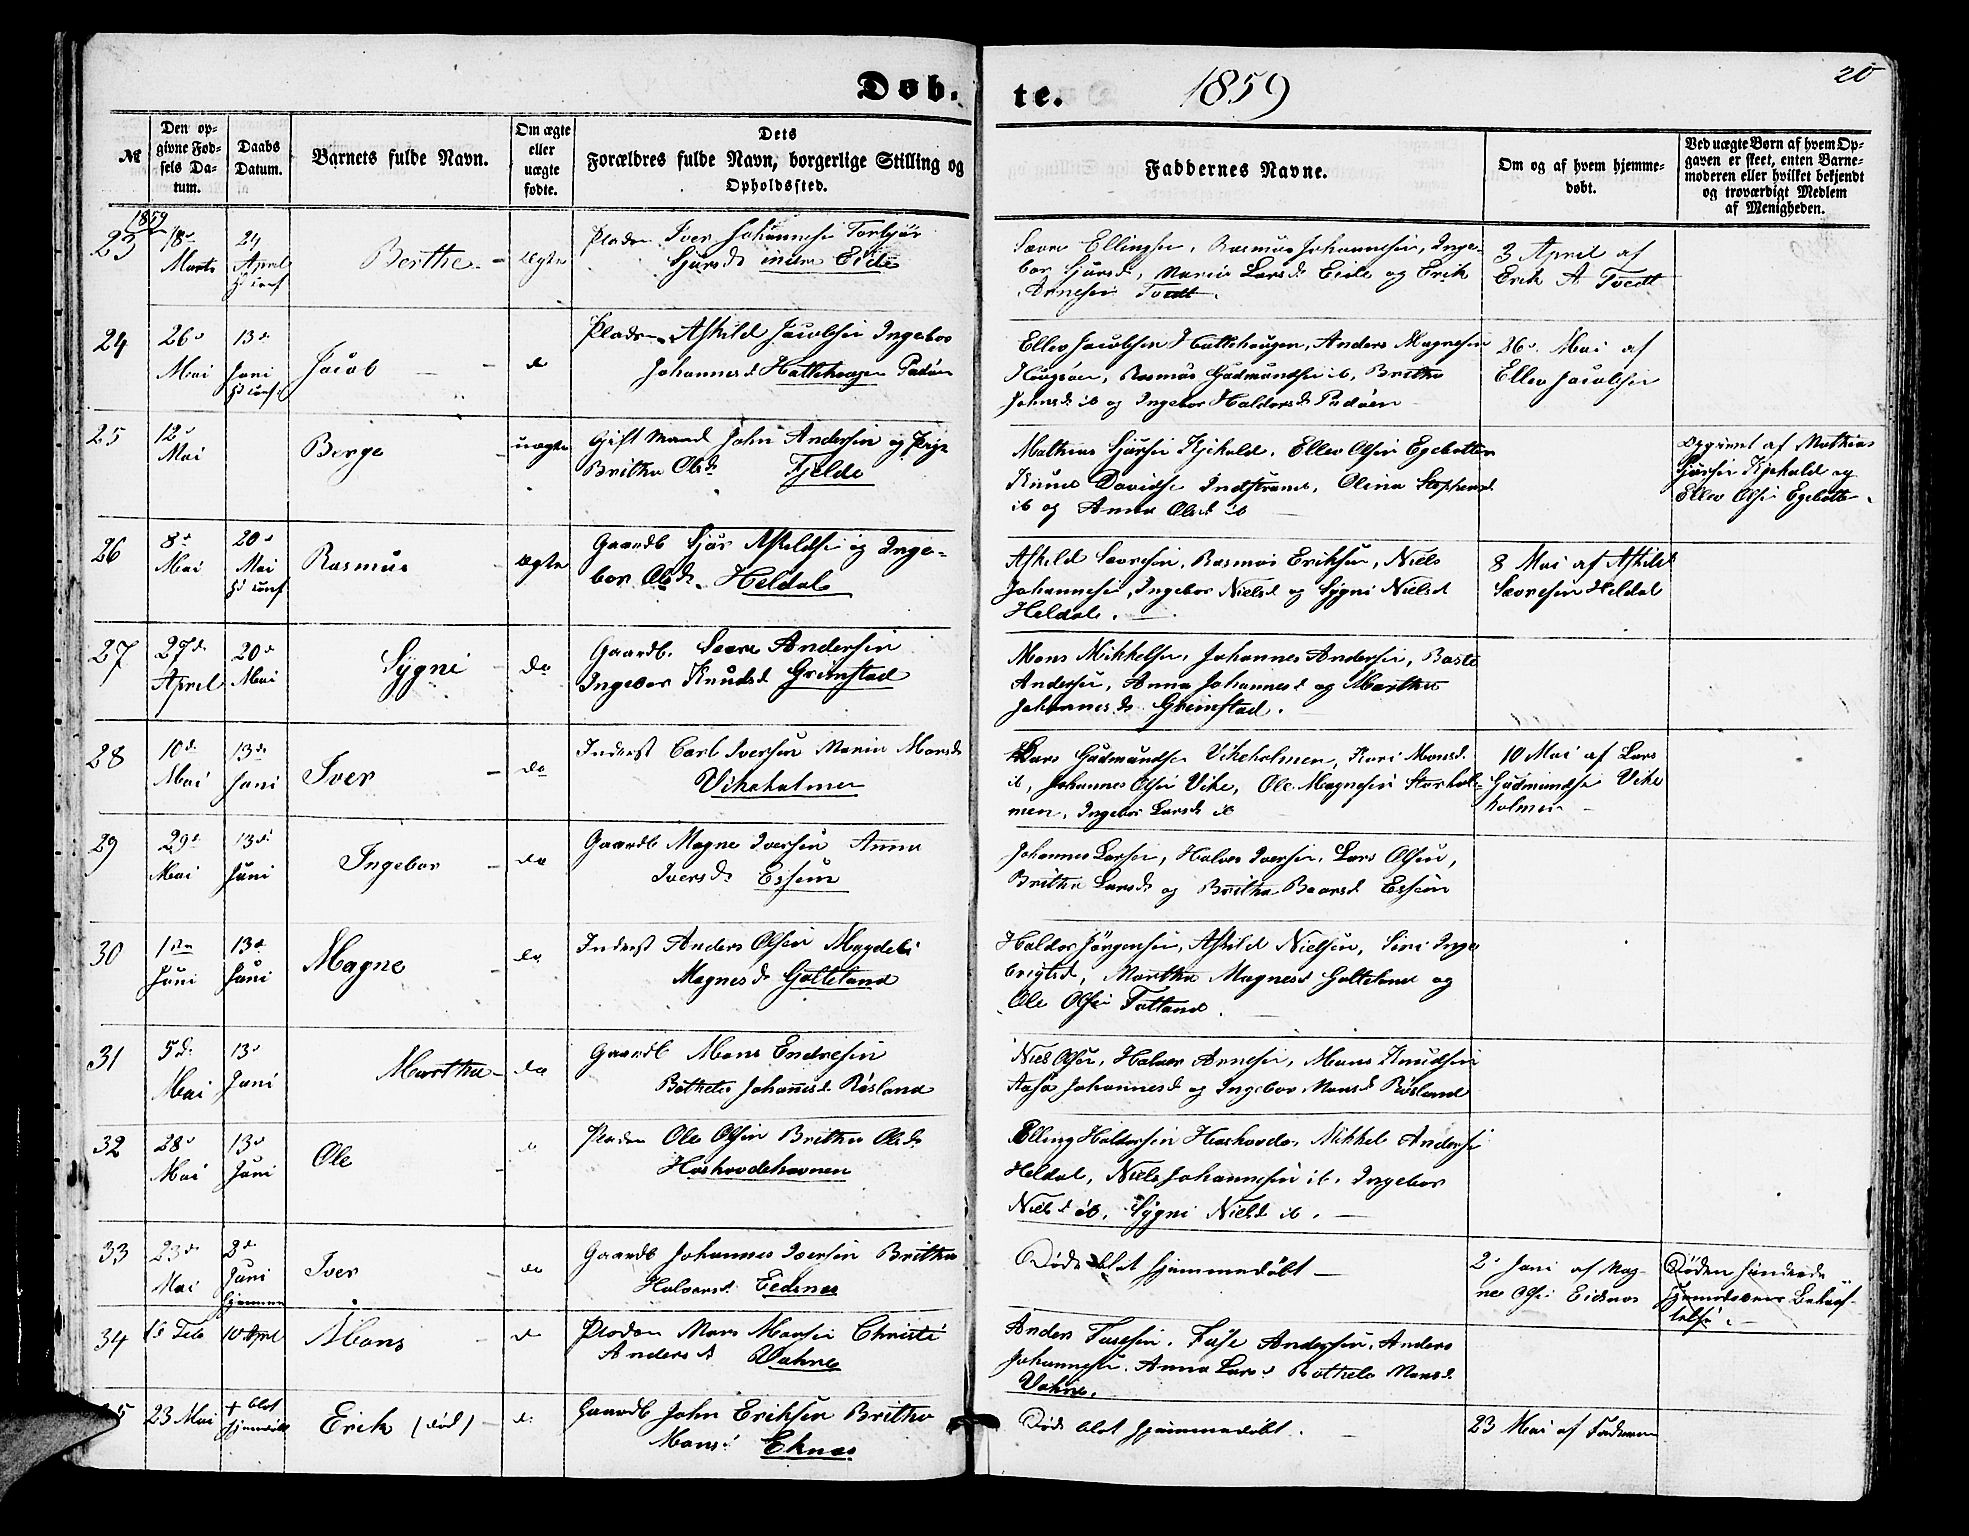 Døb.
te.
1859
20
№
Den op-
givne Fød-
sels Da-
tum.
Daabs
Datum.
Barnets fulde Navn.
Om ægte
eller
uægte
fødte.
Dets
Forældres fulde Navn, borgerlige Stilling og
Opholdssted.
Faddernes Navne.
Om og af hvem hjemme-
døbt.
Ved uægte Børn af hvem Op-
gaven er skeet, enten Barne-
moderen eller hvilket bekjendt
og troværdigt Medlem
af Menigheden.
1859
23
18d
Marts
24
April
Berthe
ægte
Pladsm Iver Johannesen Torbjør
Sjursd indre Eide
Sævre Ellingsen, Rasmus Johannesen, Inge-
bor Sjursd, Maria Larsd Eide og Erik
Arnesen Tvedt.
3 April af
Erik A Tvedt
24
26d
Mai
13d
Juni
Jacob
do
Pladsm. Askild Jacobsen Ingebor
Johannesd Hattehougen Padøen
Ellev Jacobsen Hattehougen, Anders Magnesen
Hougsøen, Rasmus Gudmundsen ib, Britha
Johnsd ib og Ingebor Haldorsd Padøen
26d. Mai af
Ellev Jacobsen
25
12d
Mai
Berge
uægte
Gift Mand John Andersen og Pige
Britha Olsd Fjelde
Mathias Sjursen Kjikald, Ellev Olsen Egebotten
Knud Davidsen Indstrand, Olina Stephensd
ib og Anna Olsd ib
Opgivet af Mathias
Sjursen Kjikald og
Ellev Olsen Egebotten.
26
8d
Mai
20d
Mai
Rasmus
ægte
Gaardb Sjur Askildsen og Inge-
bor Olsd. Heldal
Askild Sævresen, Rasmus Eriksen, Niels
Johannesen, Ingebor Nielsd og Sygni Nielsd
Heldal.
8 Mai af Askild
Sævresen Heldal
27
27d.
April
20d
Mai
Sygni
do
Gaardb. Sævre Andersen
Ingebor Knudsd Grimstad
Mons Mikkelsen, Johannes Andersen, Baste
Andersen, Anna Johannesd og Martha
Johannesd Grimstad.
28
10d.
Mai
13d
Juni
Iver
do
Inderst Carl Iversen Maria Monsd
Vikeholmen
Lars Gudmundsen Vikeholmen, Kari Monsd.
ib, Johannes Olsen Vike, Ole Magnesen Storhol-
men, Ingebor Larsd ib
10 Mai af Lars
Gudmundsen Vike
holmen
29
29d
Mai
13d
Juni
Ingebor
do
Gaardb Magne Iversen Anna
Iversd Essen
Johannes Larsen, Halvor Iversen, Lars Olsen,
Britha Larsd og Britha Baarsd Essen
30
1ste
Juni
13d
Juni
Magne
do
Inderst Anders Olsen Magdeli
Magnesd Golteland
Haldor Jørgensen, Askild Nielsen, Siri Inge
brigtsd, Martha Magnesd Golteland og
Ole Olsen Totland.
31
5d.
Mai
13d
Juni
Martha
do
Gaardb Mons Endresen
Bothele Johannesd Røsland
Niels Olsen, Halvor Arnesen, Mons Knudsen
Aasa Johannesd og Ingebor Monsd Røsland
32
28d
Mai
13d
Juni
Ole
d
Pladsm Ole Olsen Britha Olsd.
Haskovdehavnen
Elling Haldorsen Haskovde, Mikkel Andersen
Heldal, Niels Johannesen ib, Ingebor
Nielsd ib, Sygni Nielsd ib.
33
23d
Mai
2d
Juni
hjemme
Iver
do
Gaardb Johannes Iversen Britha
Halvorsd. Eidsnes
Døde blot hjemmedøbt
2d Juni af Mag-
nes Olsen Eidsnes
Døden hindrede
Hjemmedaabens Bekræf-
telse.
34
15 Feb
10 April
Mons
do
Pladsm Mons Monsen Christi
Andersd Vahne
Anders Tufesen, Tufe Andersen, Anders
Johannesen, Anna Larsd Bothele Monsd
Vahne.
5
23 Mai
+ blot
hjemdøbt
Erik (død)
d.
Gaardb John Eriksen Britha
Monsd Eknes
Død blot hjemmedøbt.
23 Mai af Faderen